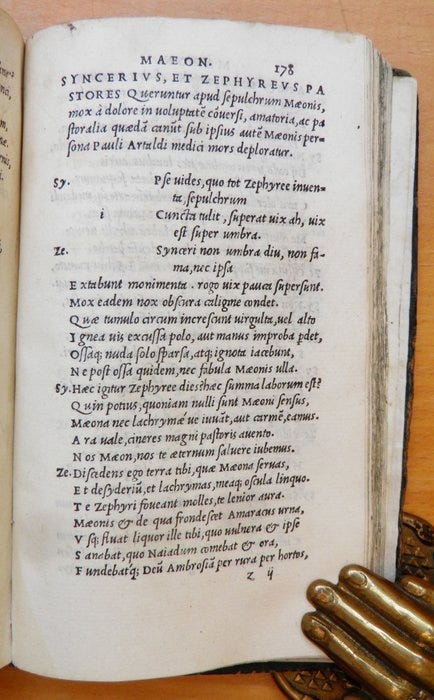 MAEON. 178
SYNCERIVS, ET ZEPHYREVS PA
STORES Queruntur apud sepulchrum Mæonis,
mox à dolore in voluptatẽ cõuersi, amatoria, ac pa
storalia quædã canũt sub ipsius autẽ Mæonis per-
sona Pauli Artaldi medici mors deploratur.
Sy. Pse uides, quo tot Zephyree inuen-
ta, sepulchrum
i Cuncta tulit, superat uix ah, uix
est super umbra.
Ze. Synceri non umbra diu, non fa-
ma, nec ipsa
Extabunt monimenta. rogo uix pauca supersunt.
Mox eadem nox obscura caligine condet.
Quæ tumulo circum increscunt uirgulta, uel alto
Ignea uis excussa polo, aut manus improba pdet,
Ossaq; nuda solo sparsa, atq; ignota iacebunt,
Ne post ossa quidem, nec fabula Mæonis ulla.
Sy. Hæc igitur Zephyree dies? hæc summa laborum est?
Quin potius, quoniam nulli sunt Mæoni sensus,
Mæona nec lachrymæ ue iuuãt, aut carmẽ, eamus.
Ara uale, cineres magni pastoris auento.
Nos Mæon, nos te æternum saluere iubemus.
Ze. Discedens ego terra tibi, quæ Mæona seruas,
Et desyderiũ, et lachrymas, meaq; oscula linquo.
Te Zephyri foueant molles, te lenior aura.
Mæonis & de qua frondescet Amaracus urna,
Vsq; fluat liquor ille tibi, quo uulnera & ipse
Sanabat, quo Naiadum comebat & ora,
Fundebatq; Deũ Ambrosiã per rura per hortos,
z ij